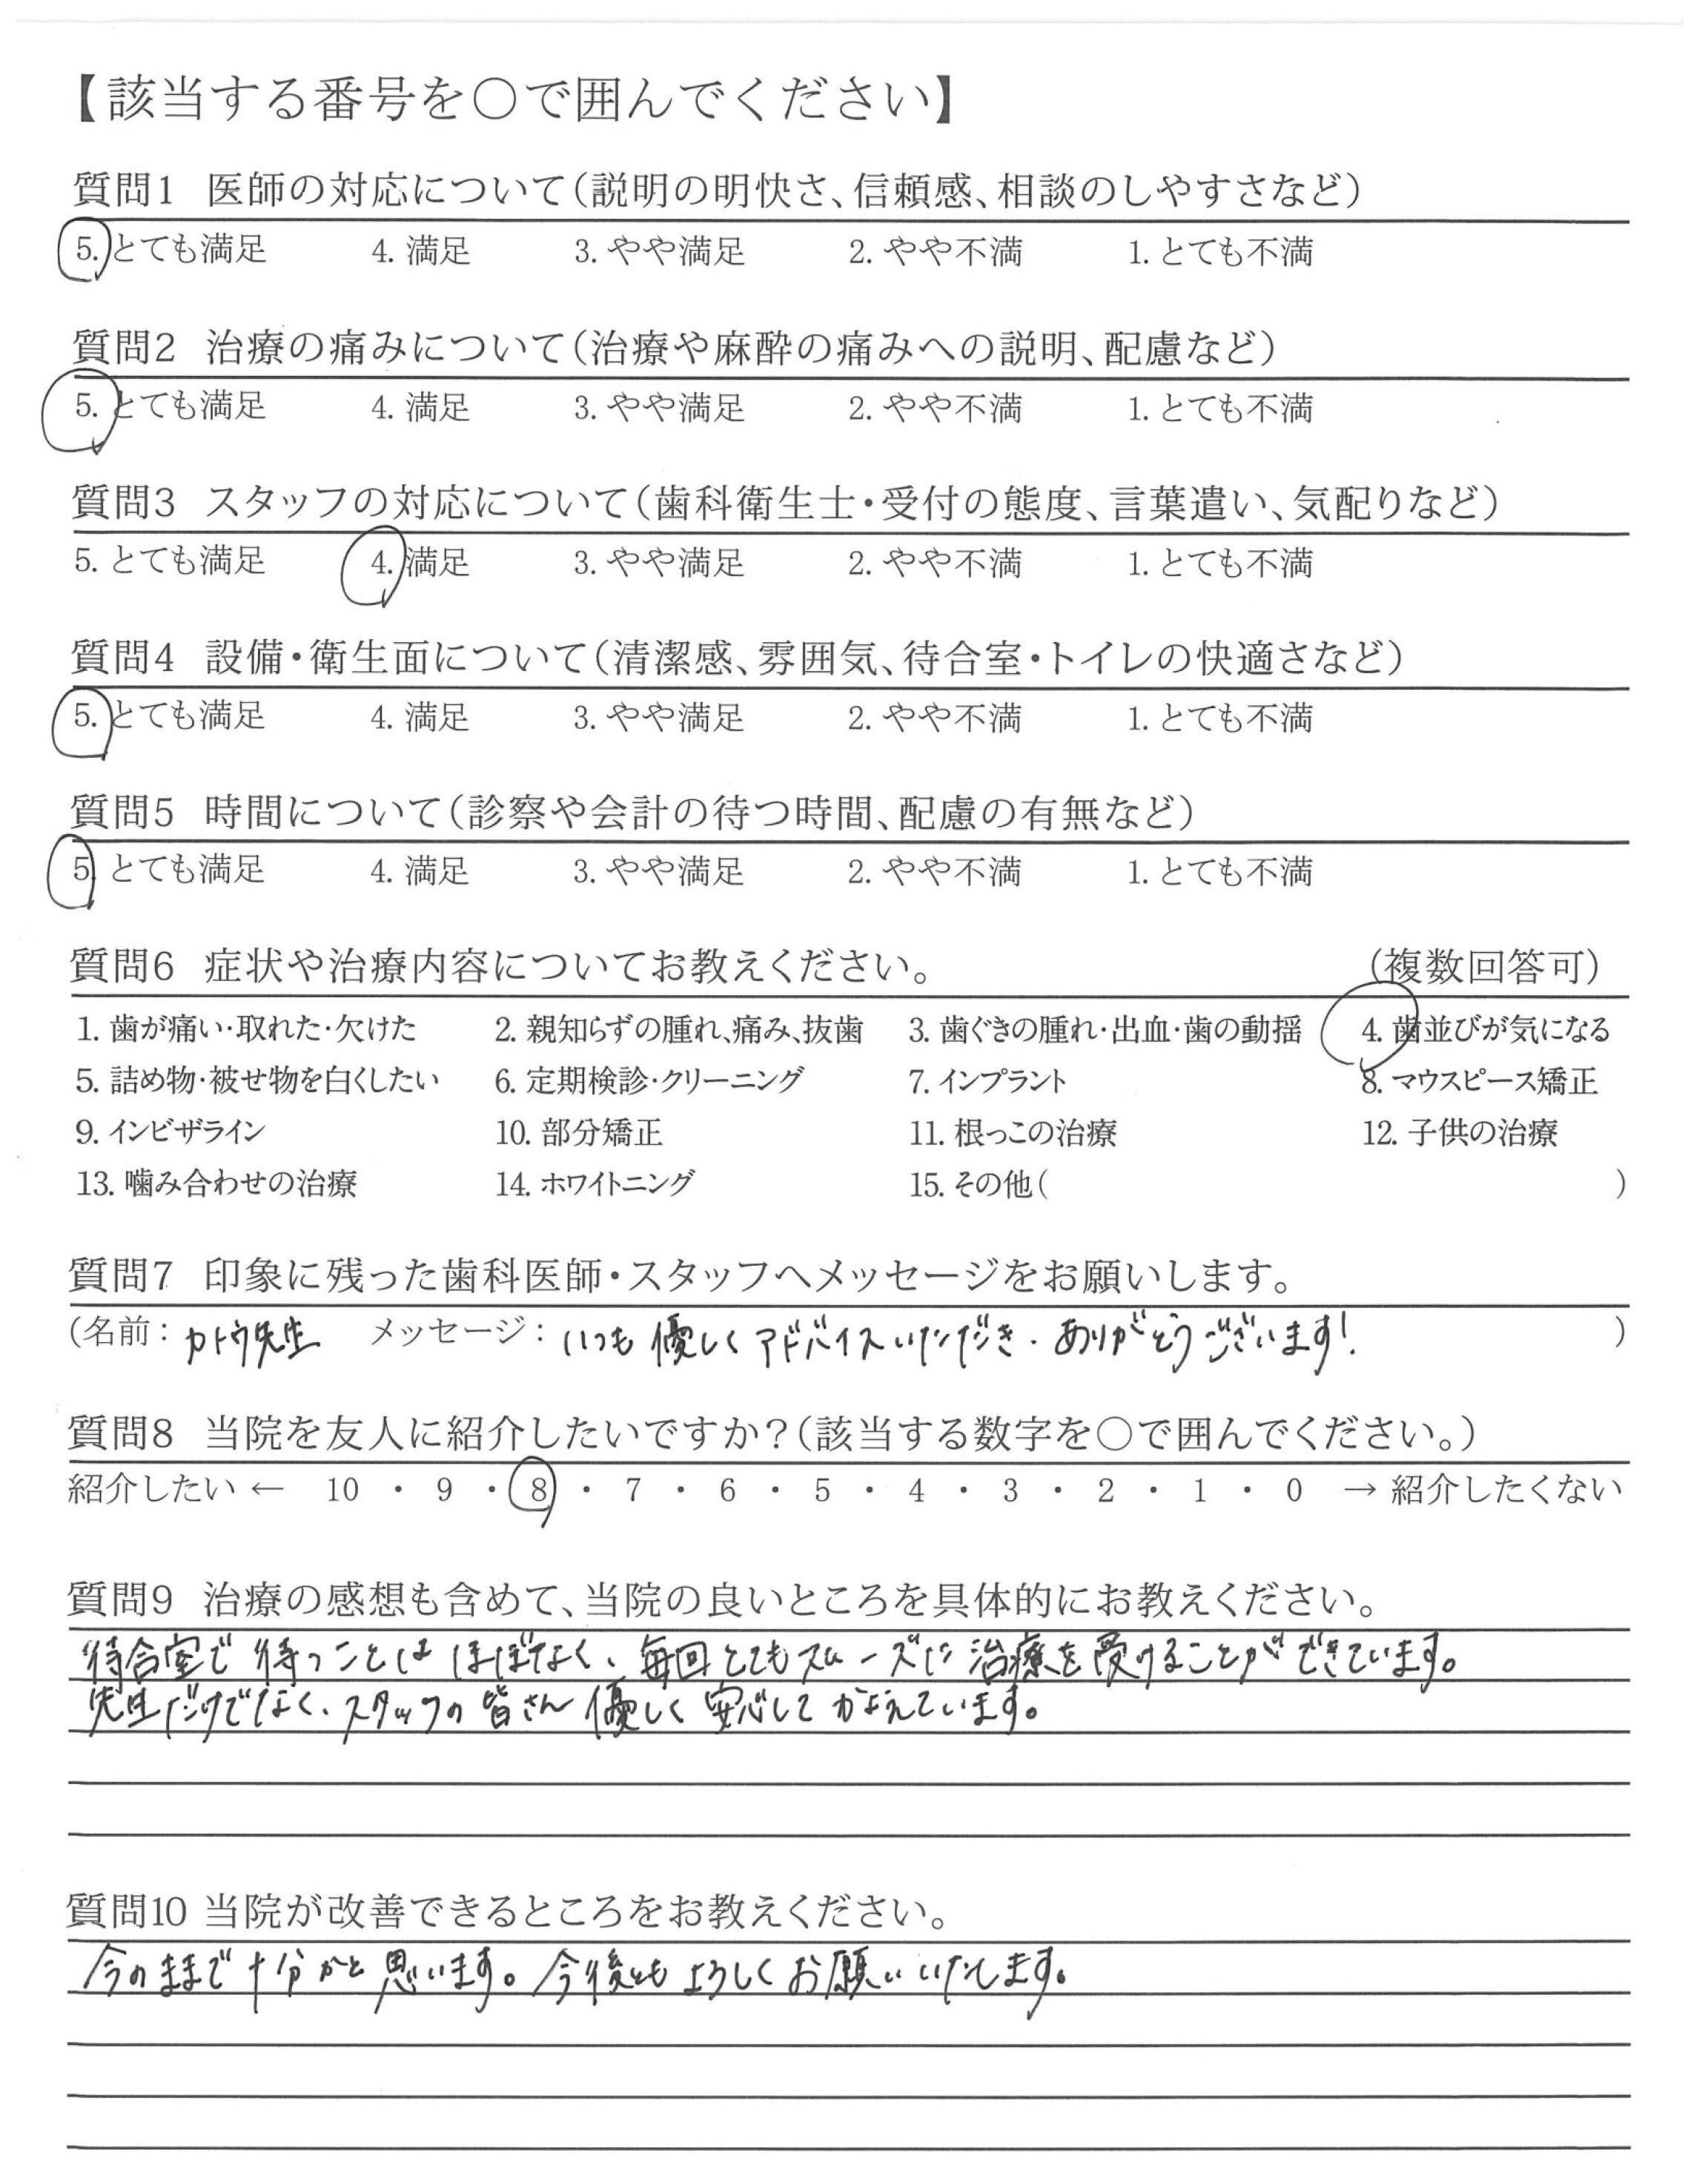 【該当する番号を○で囲んでください】
質問1 医師の対応について(説明の明快さ、信頼感、相談のしやすさなど)
5. とても満足 4. 満足 3. やや満足 2. やや不満 1. とても不満
質問2 治療の痛みについて(治療や麻酔の痛みへの説明、配慮など)
5. とても満足 4. 満足 3. やや満足 2. やや不満 1. とても不満
質問3 スタッフの対応について(歯科衛生士・受付の態度、言葉遣い、気配りなど)
5. とても満足 4. 満足 3. やや満足 2. やや不満 1. とても不満
質問4 設備・衛生面について(清潔感、雰囲気、待合室・トイレの快適さなど)
5. とても満足 4. 満足 3. やや満足 2. やや不満 1. とても不満
質問5 時間について(診察や会計の待つ時間、配慮の有無など)
5. とても満足 4. 満足 3. やや満足 2. やや不満 1. とても不満
質問6 症状や治療内容についてお教えください。 (複数回答可)
1. 歯が痛い・取れた・欠けた 2. 親知らずの腫れ、痛み、抜歯 3. 歯ぐきの腫れ・出血・歯の動揺 4. 歯並びが気になる
5. 詰め物・被せ物を白くしたい 6. 定期検診・クリーニング 7. インプラント 8. マウスピース矯正
9. インビザライン 10. 部分矯正 11. 根っこの治療 12. 子供の治療
13. 噛み合わせの治療 14. ホワイトニング 15. その他( )
質問7 印象に残った歯科医師・スタッフへメッセージをお願いします。
(名前: カトウ先生 メッセージ: いつも優しくアドバイスいただき、ありがとうございます! )
質問8 当院を友人に紹介したいですか?(該当する数字を○で囲んでください。)
紹介したい ← 10 ・ 9 ・ 8 ・ 7 ・ 6 ・ 5 ・ 4 ・ 3 ・ 2 ・ 1 ・ 0 → 紹介したくない
質問9 治療の感想も含めて、当院の良いところを具体的にお教えください。
待合室で待つことはほぼなく、毎回とてもスムーズに治療を受けることができています。
先生だけでなく、スタッフの皆さん優しく安心してかよえています。
質問10 当院が改善できるところをお教えください。
今のままで十分かと思います。今後ともよろしくお願いいたします。